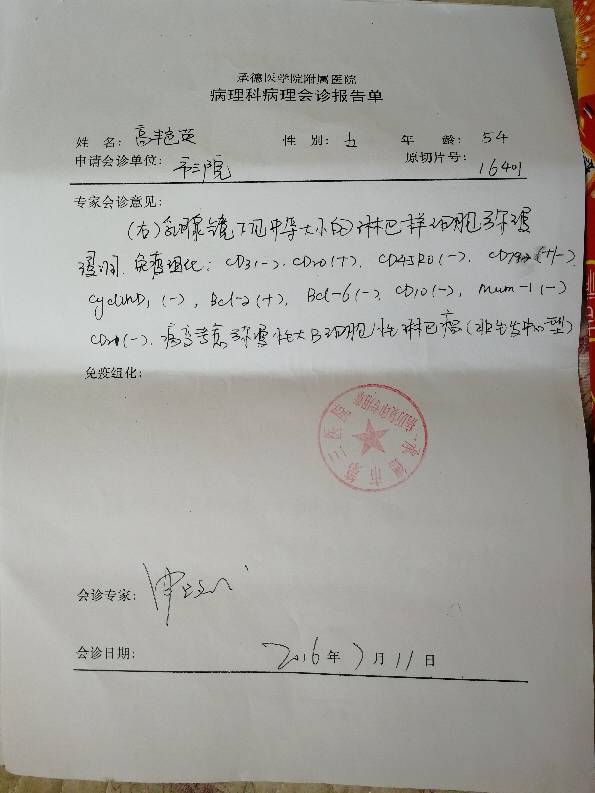 承德医学院附属医院
病理科病理会诊报告单
姓 名: 高艳英 性 别: 女 年 龄: 54
申请会诊单位: 市三院 原切片号: 16401
专家会诊意见:
(右)乳腺镜下见中等大小的淋巴样细胞弥漫
浸润. 免疫组化: CD3(-). CD20(+). CD45RO(-). CD79a(+/-).
CyclinD1(-), Bcl-2(+), Bcl-6(-). CD10(-), mum-1(-)
(-). 病变考虑弥漫性大B细胞性淋巴瘤(非生发中心型)
免疫组化:
承德市第三医院
病历复印专用章
会诊专家:
会诊日期: 2016年7月11日